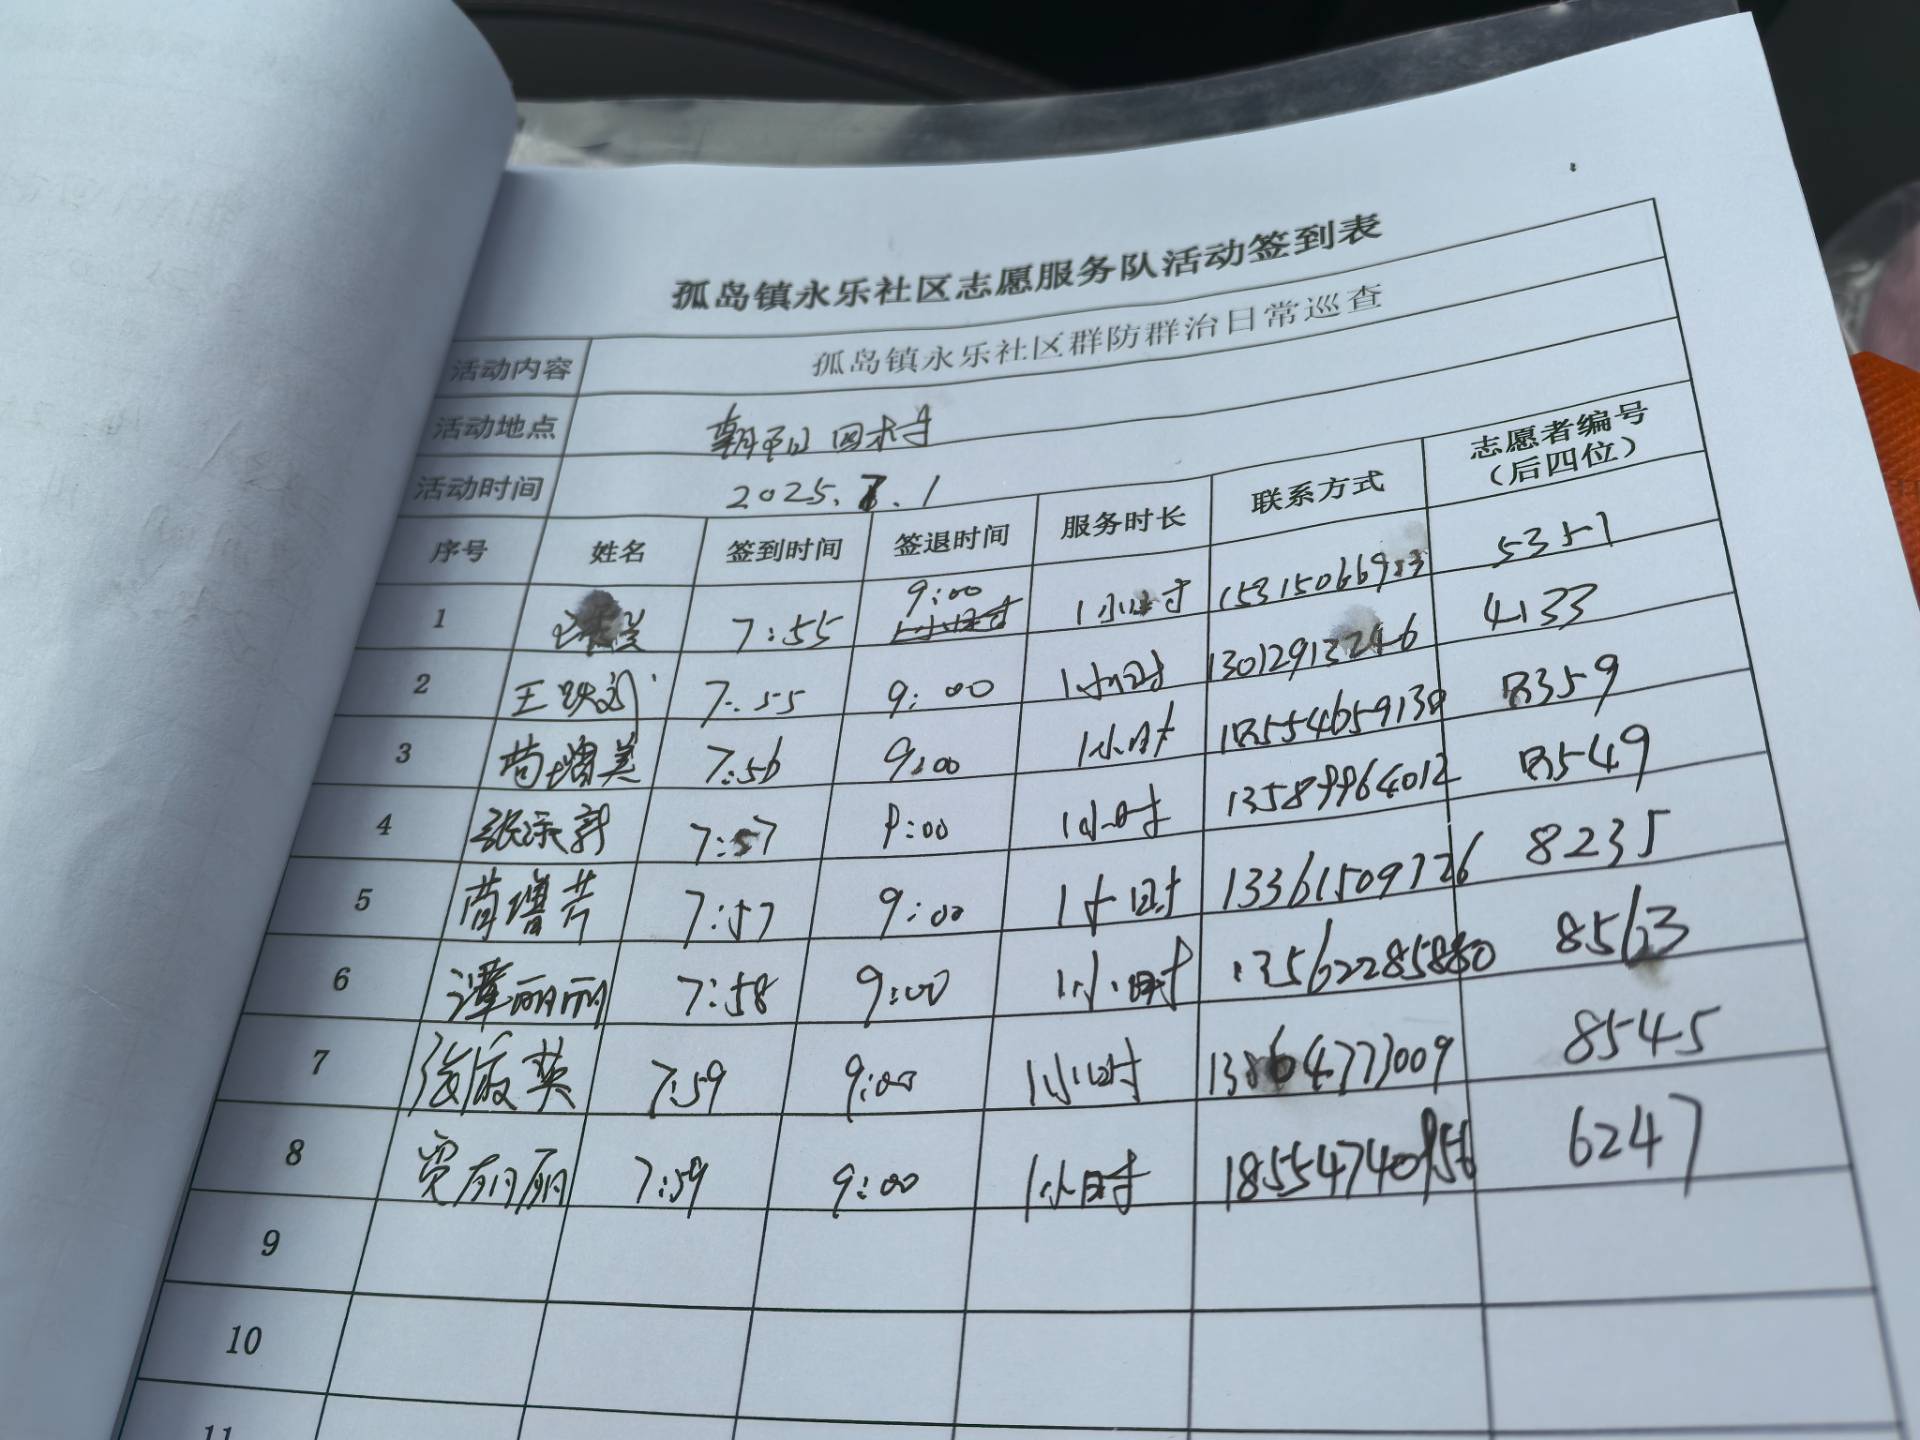 孤岛镇永乐社区志愿服务队活动签到表
活动内容 孤岛镇永乐社区群防群治日常巡查
活动地点 朝阳四村
活动时间 2025.7.1
序号 姓名 签到时间 签退时间 服务时长 联系方式 志愿者编号（后四位）
1 7:55 9:00 1小时 5351
2 王 7:55 9:00 1小时 13012913246 4133
3 苟增美 7:56 9:00 1小时 18554659138 8359
4 张 7:57 9:00 1小时 13589964012 8549
5 苟增芳 7:57 9:00 1小时 13361509726 8235
6 谭丽丽 7:58 9:00 1小时 13562285880 8563
7 英 7:59 9:00 1小时 8545
8 贾丽丽 7:59 9:00 1小时 18554740956 6247
9
10
11